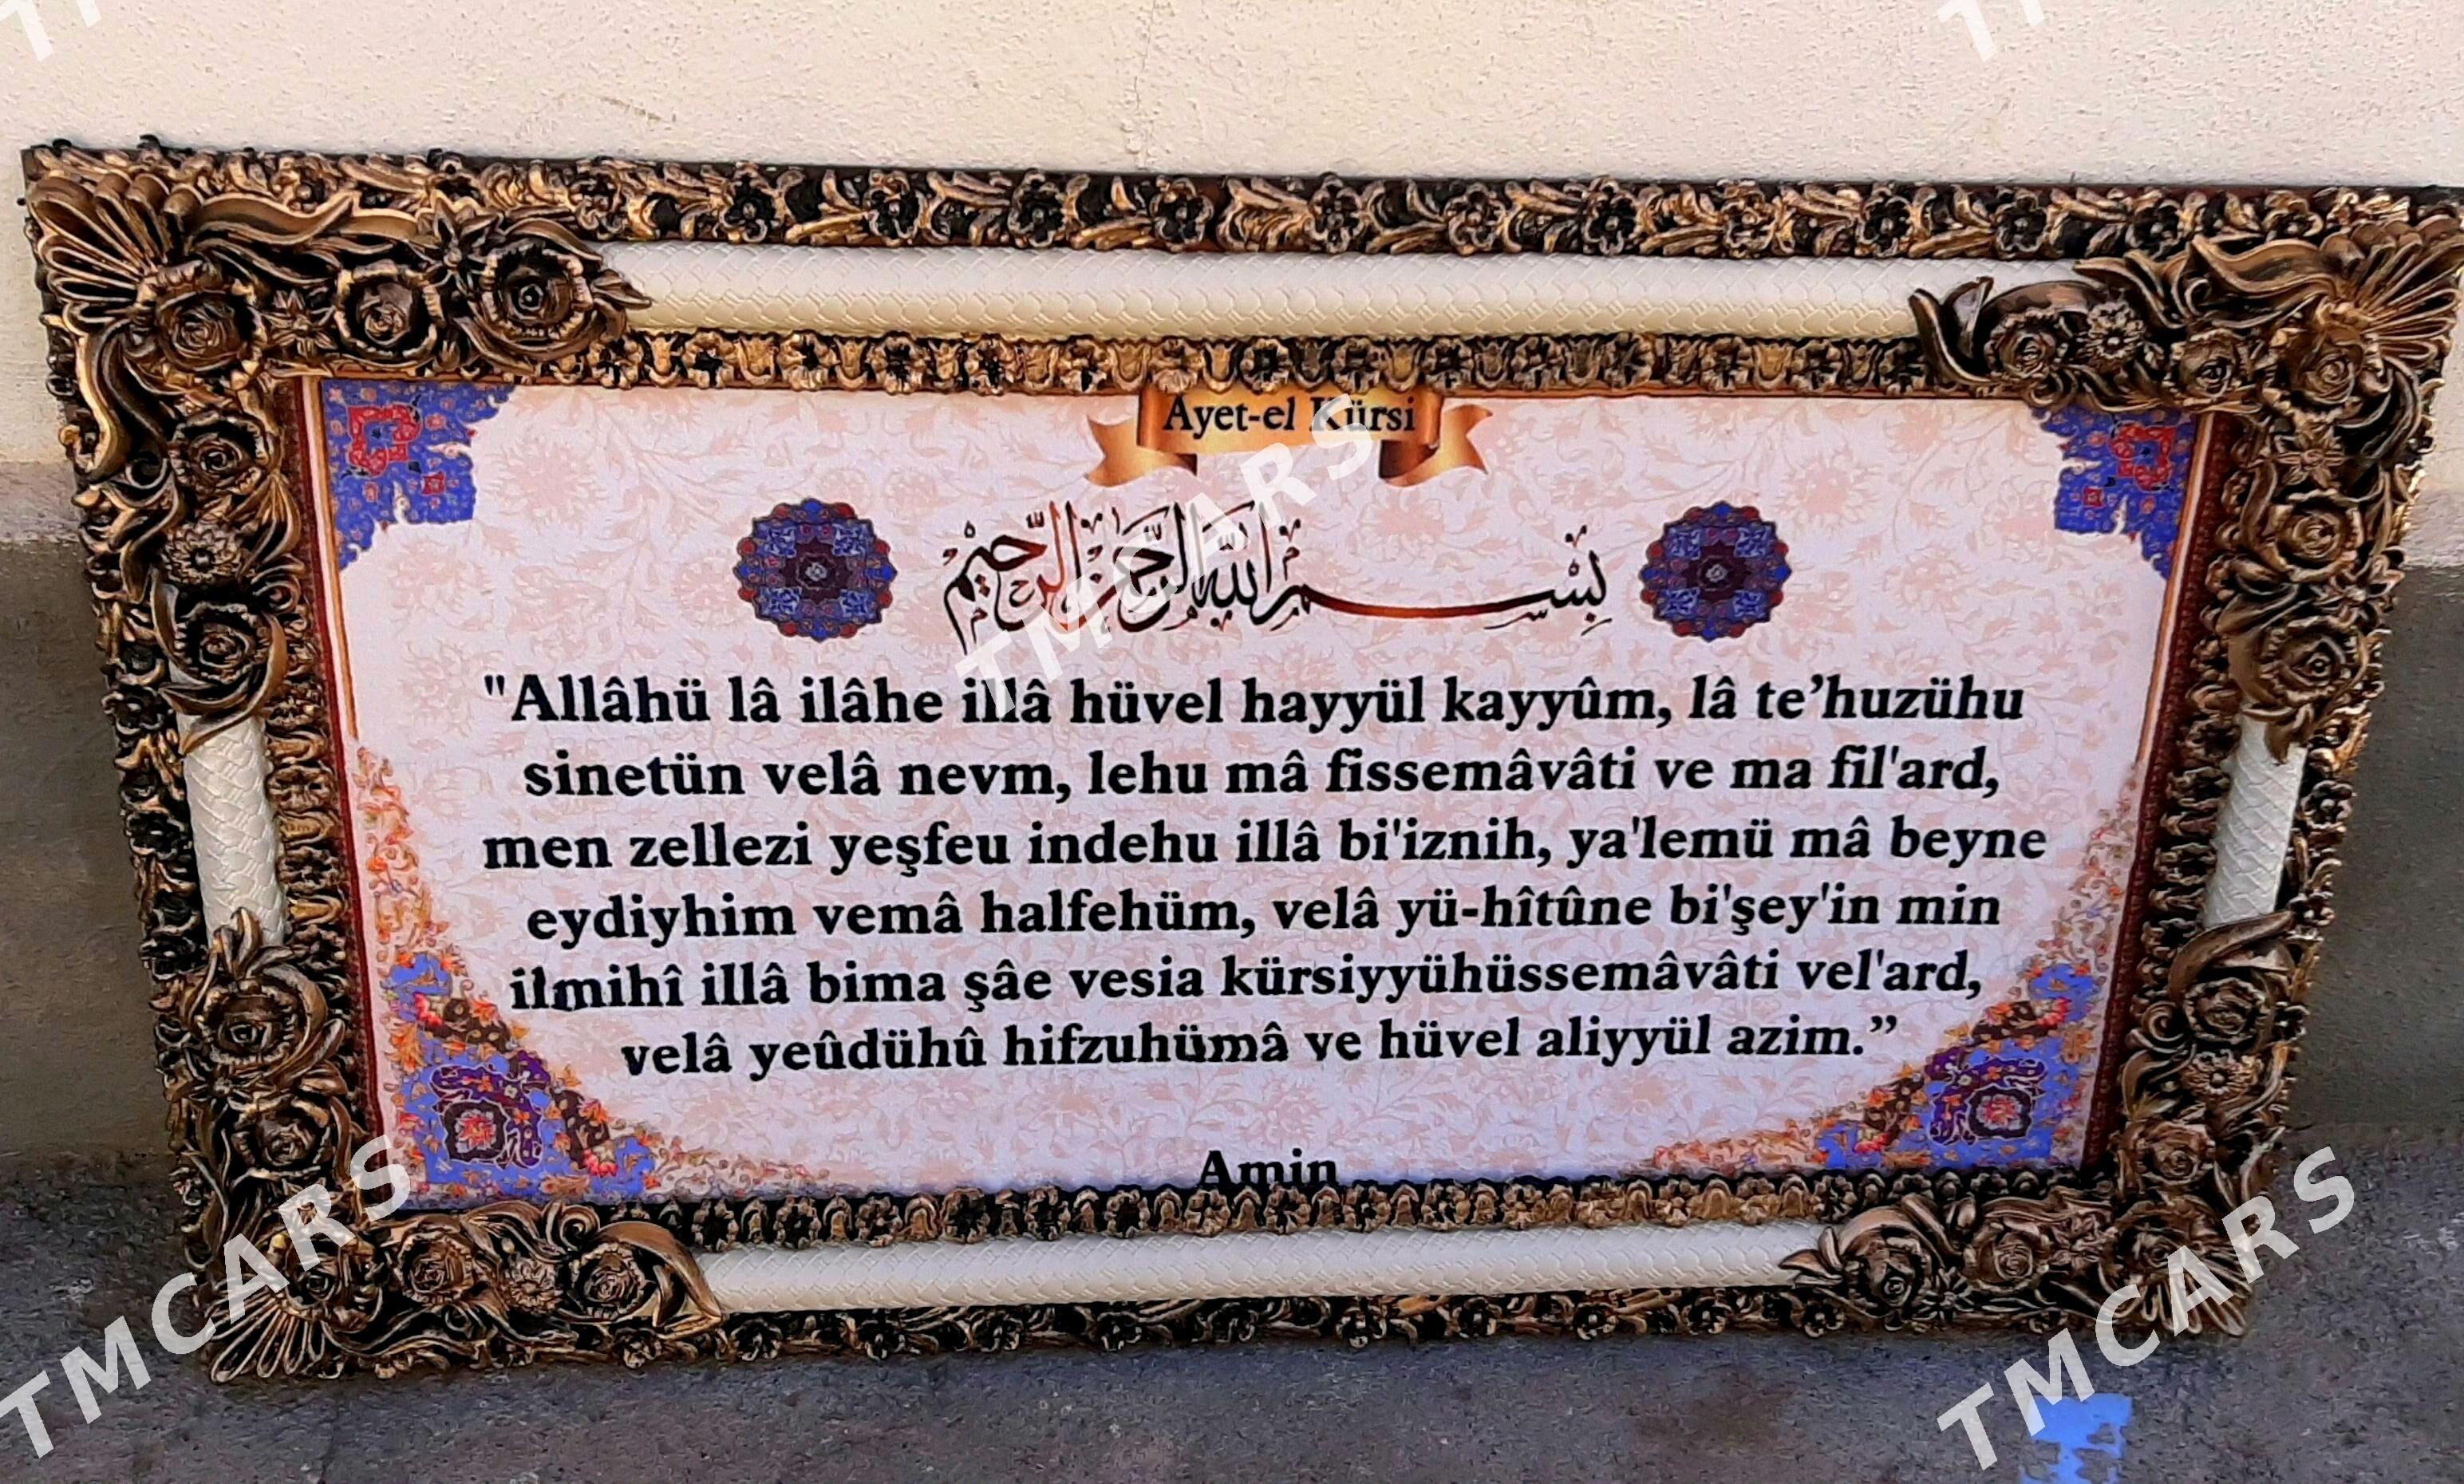 Ayet-el Kürsi
بسم الله الرحمن الرحيم
"Allâhü lâ ilâhe illâ hüvel hayyül kayyûm, lâ te’huzühu
sinetün velâ nevm, lehu mâ fissemâvâti ve ma fil'ard,
men zellezi yeşfeu indehu illâ bi'iznih, ya'lemü mâ beyne
eydiyhim vemâ halfehüm, velâ yü-hîtûne bi'şey'in min
ilmihî illâ bima şâe vesia kürsiyyühüssemâvâti vel'ard,
velâ yeûdühû hifzuhümâ ve hüvel aliyyül azim.”
Amin
TMCARS
TMCARS
TMCARS